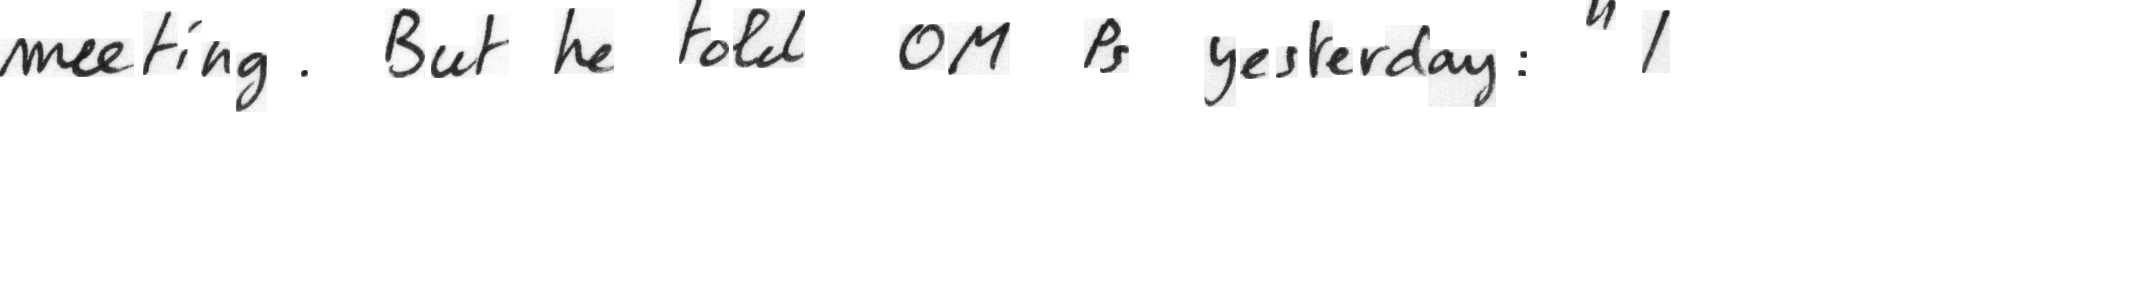 meeting. But he told OM Ps yesterday: "I